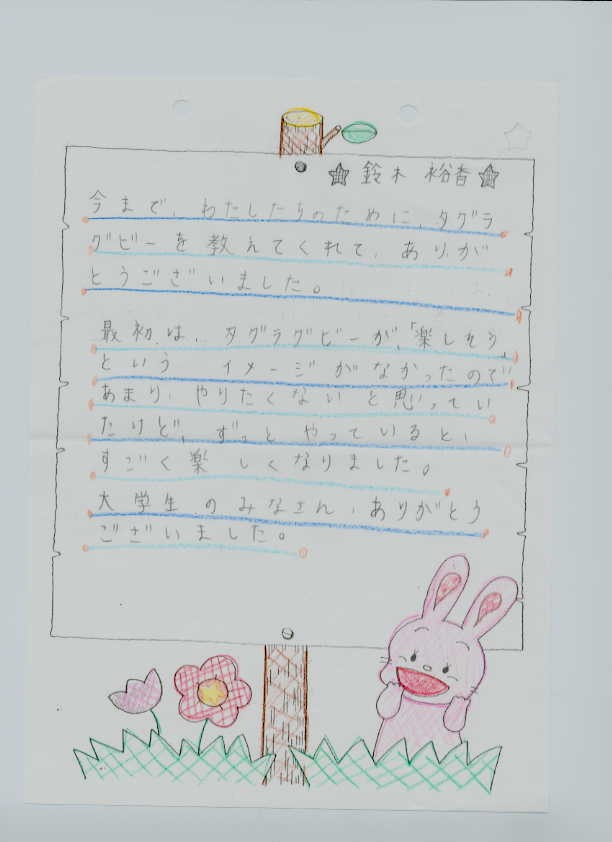 ☆鈴木 裕香☆
今まで、わたしたちのために、タグラ
グビーを教えてくれて、ありが
とうございました。
最初は、タグラグビーが、「楽しそう」
という イメージがなかったので
あまり、やりたくないと思ってい
たけど、ずっと やっていると、
すごく楽 しくなりました。
大学生のみなさん、ありがとう
ございました。